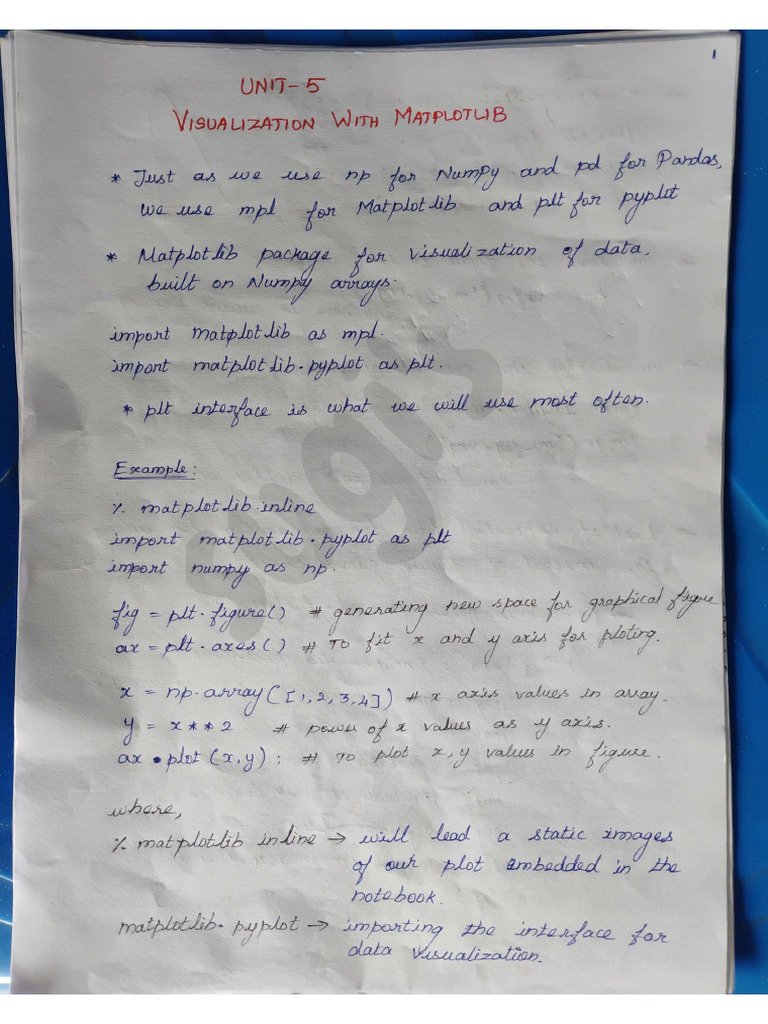 1
UNIT-5
VISUALIZATION WITH MATPLOTLIB
* Just as we use np for NumPy and pd for Pandas,
we use mpl for Matplotlib and plt for pyplot
* Matplotlib package for visualization of data,
built on Numpy arrays.
import matplotlib as mpl.
import matplotlib.pyplot as plt.
* plt interface is what we will use most often.
Example:
% matplotlib.inline
import matplotlib.pyplot as plt
import numpy as np.
fig = plt.figure() # generating new space for graphical figure
ax = plt.axes() # To fit x and y axis for ploting.
x = np.array([1,2,3,4]) # x axis values in array.
y = x**2 # power of x values as y axis.
ax.plot(x,y); # To plot x,y values in figure.
where,
% matplotlib inline → will lead a static images
of our plot embedded in the
notebook.
matplotlib.pyplot → importing the interface for
data visualization.